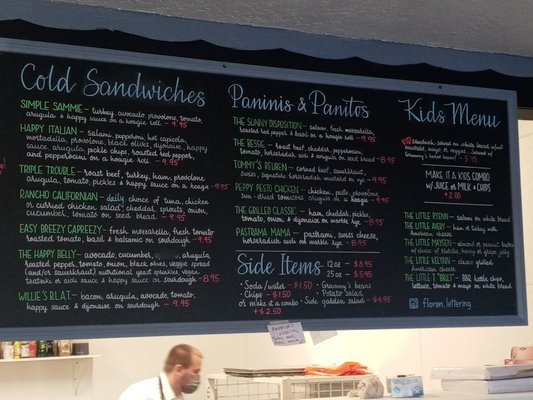 Cold Sandwiches
SIMPLE SAMMIE - turkey, avocado, provolone, tomato,
arugula & happy sauce on a hoagie roll - 9.95
HAPPY ITALIAN - salami, pepperoni, hot capicola,
mortadella, provolone, black olives, dijonaise, happy
sauce, arugula, pickle chips, roasted red pepper,
and pepperoncini on a hoagie roll - 9.95
TRIPLE TROUBLE - roast beef, turkey, ham, provolone
arugula, tomato, pickles & happy sauce on a hoagie - 9.25
RANCHO CALIFORNIAN - daily choice of tuna, chicken
or curried chicken salad, cheddar, sprouts, onion,
cucumber, tomato on seed bread - 9.95
EASY BREEZY CAPREEZY - fresh mozzarella, fresh tomato
roasted tomato, basil & balsamic on sourdough - 9.95
THE HAPPY BELLY - avocado, cucumber, arugula,
roasted pepper, tomato, onion, black olives, veggie spread
(and/or sauerkraut) nutritional yeast, sprinkles, vegan
aside & happy sauce on sourdough - 8.95
WILLIE'S BLAT - bacon, arugula, avocado, tomato,
happy sauce & dijonaise on sourdough - 9.95
Paninis & Panitos
THE SUNNY DISPOSITION - salami, fresh mozzarella,
roasted red pepper, & basil on a hoagie roll - 9.95
THE BESSIE - roast beef, cheddar, pepperoncini,
tomato, horseradish aioli & arugula on seed bread - 8.95
TOMMY'S REUBEN - corned beef, sauerkraut,
swiss, signature horseradish, marble rye - 8.95
PEPPY PESTO CHICKEN - chicken, pesto, provolone,
sun-dried tomatoes, arugula on a hoagie - 9.95
THE GRILLED CLASSIC - ham, cheddar, pickles,
tomato, onion, & dijonaise on marble rye - 8.95
PASTRAMA MAMA - pastrami, swiss cheese,
horseradish aioli on marble rye - 8.95
Side Items
12 oz - $3.95
25 oz - $5.95
• Soda/water - $1.50
• Chips - $1.50
or make it a combo
+$2.50
• Grammy's beans
• Potato Salad
• Side garden salad - $4.95
Kids Menu
KID sandwich, served on white bread w/out
mustard, mayo, or veggies. Served w/
Grammy's baked beans! - $5.95
MAKE IT A KIDS COMBO
W/ JUICE or MILK & CHIPS
+ 2.00
THE LITTLE FLYNN - salami on white bread
THE LITTLE AVERY - ham or turkey with
American cheese
THE LITTLE MAYSEN - almond or peanut butter
w/ choice of Nutella, honey or grape jelly
THE LITTLE KELYNN - classic grilled
American cheese
THE LITTLE T "BRBLT" - BBQ kettle chips,
lettuce, tomato & mayo on white bread
floren_lettering
SPECIAL